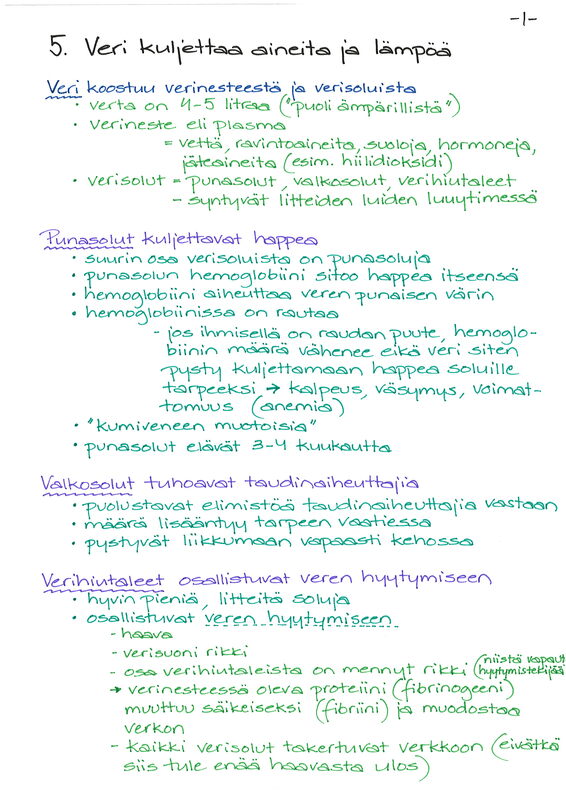 -1-
5. Veri kuljettaa aineita ja lämpöä
Veri koostuu verinesteestä ja verisoluista
• verta on 4-5 litraa ("puoli ämpärillistä")
• verineste eli plasma
= vettä, ravintoaineita, suoloja, hormoneja,
jäteaineita (esim. hiilidioksidi)
• verisolut = punasolut, valkosolut, verihiutaleet
- syntyvät litteiden luiden luuytimessä
Punasolut kuljettavat happea
• suurin osa verisoluista on punasoluja
• punasolun hemoglobiini sitoo happea itseensä
• hemoglobiini aiheuttaa veren punaisen värin
• hemoglobiinissa on rautaa
- jos ihmisellä on raudan puute, hemoglo-
biinin määrä vähenee eikä veri siten
pysty kuljettamaan happea soluille
tarpeeksi → kalpeus, väsymys, voimat-
tomuus (anemia)
• "kumiveneen muotoisia"
• punasolut elävät 3-4 kuukautta
Valkosolut tuhoavat taudinaiheuttajia
• puolustavat elimistöä taudinaiheuttajia vastaan
• määrä lisääntyy tarpeen vaatiessa
• pystyvät liikkumaan vapaasti kehossa
Verihiutaleet osallistuvat veren hyytymiseen
• hyvin pieniä, litteitä soluja
• osallistuvat veren hyytymiseen
- haava
- verisuoni rikki
- osa verihiutaleista on mennyt rikki (niistä vapaut
hyytymistekijää
→ verinesteessä oleva proteiini (fibrinogeeni)
muuttuu säikeiseksi (fibriini) ja muodostaa
verkon
- kaikki verisolut takertuvat verkkoon (eivätkä
siis tule enää haavasta ulos)